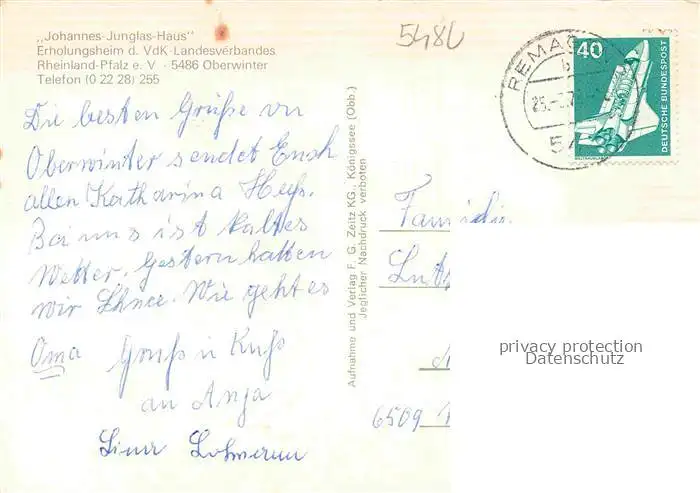 „Johannes-Junglas-Haus"
Erholungsheim d. VdK-Landesverbandes
Rheinland-Pfalz e. V · 5486 Oberwinter
Telefon (0 22 28) 255
548
REMAG
25.
40
DEUTSCHE BUNDESPOST
Die besten Grüße von
Oberwinter sendet Euch
allen Katharina
Bei uns ist kaltes
Wetter, Gestern hatten
wir Schnee. Wie geht es
Oma Gruß u Kuß
an Anja
Aufnahme und Verlag F. G. Zeitz KG., Königssee (Obb.)
Jeglicher Nachdruck verboten
Familie
privacy protection
Datenschutz
6509